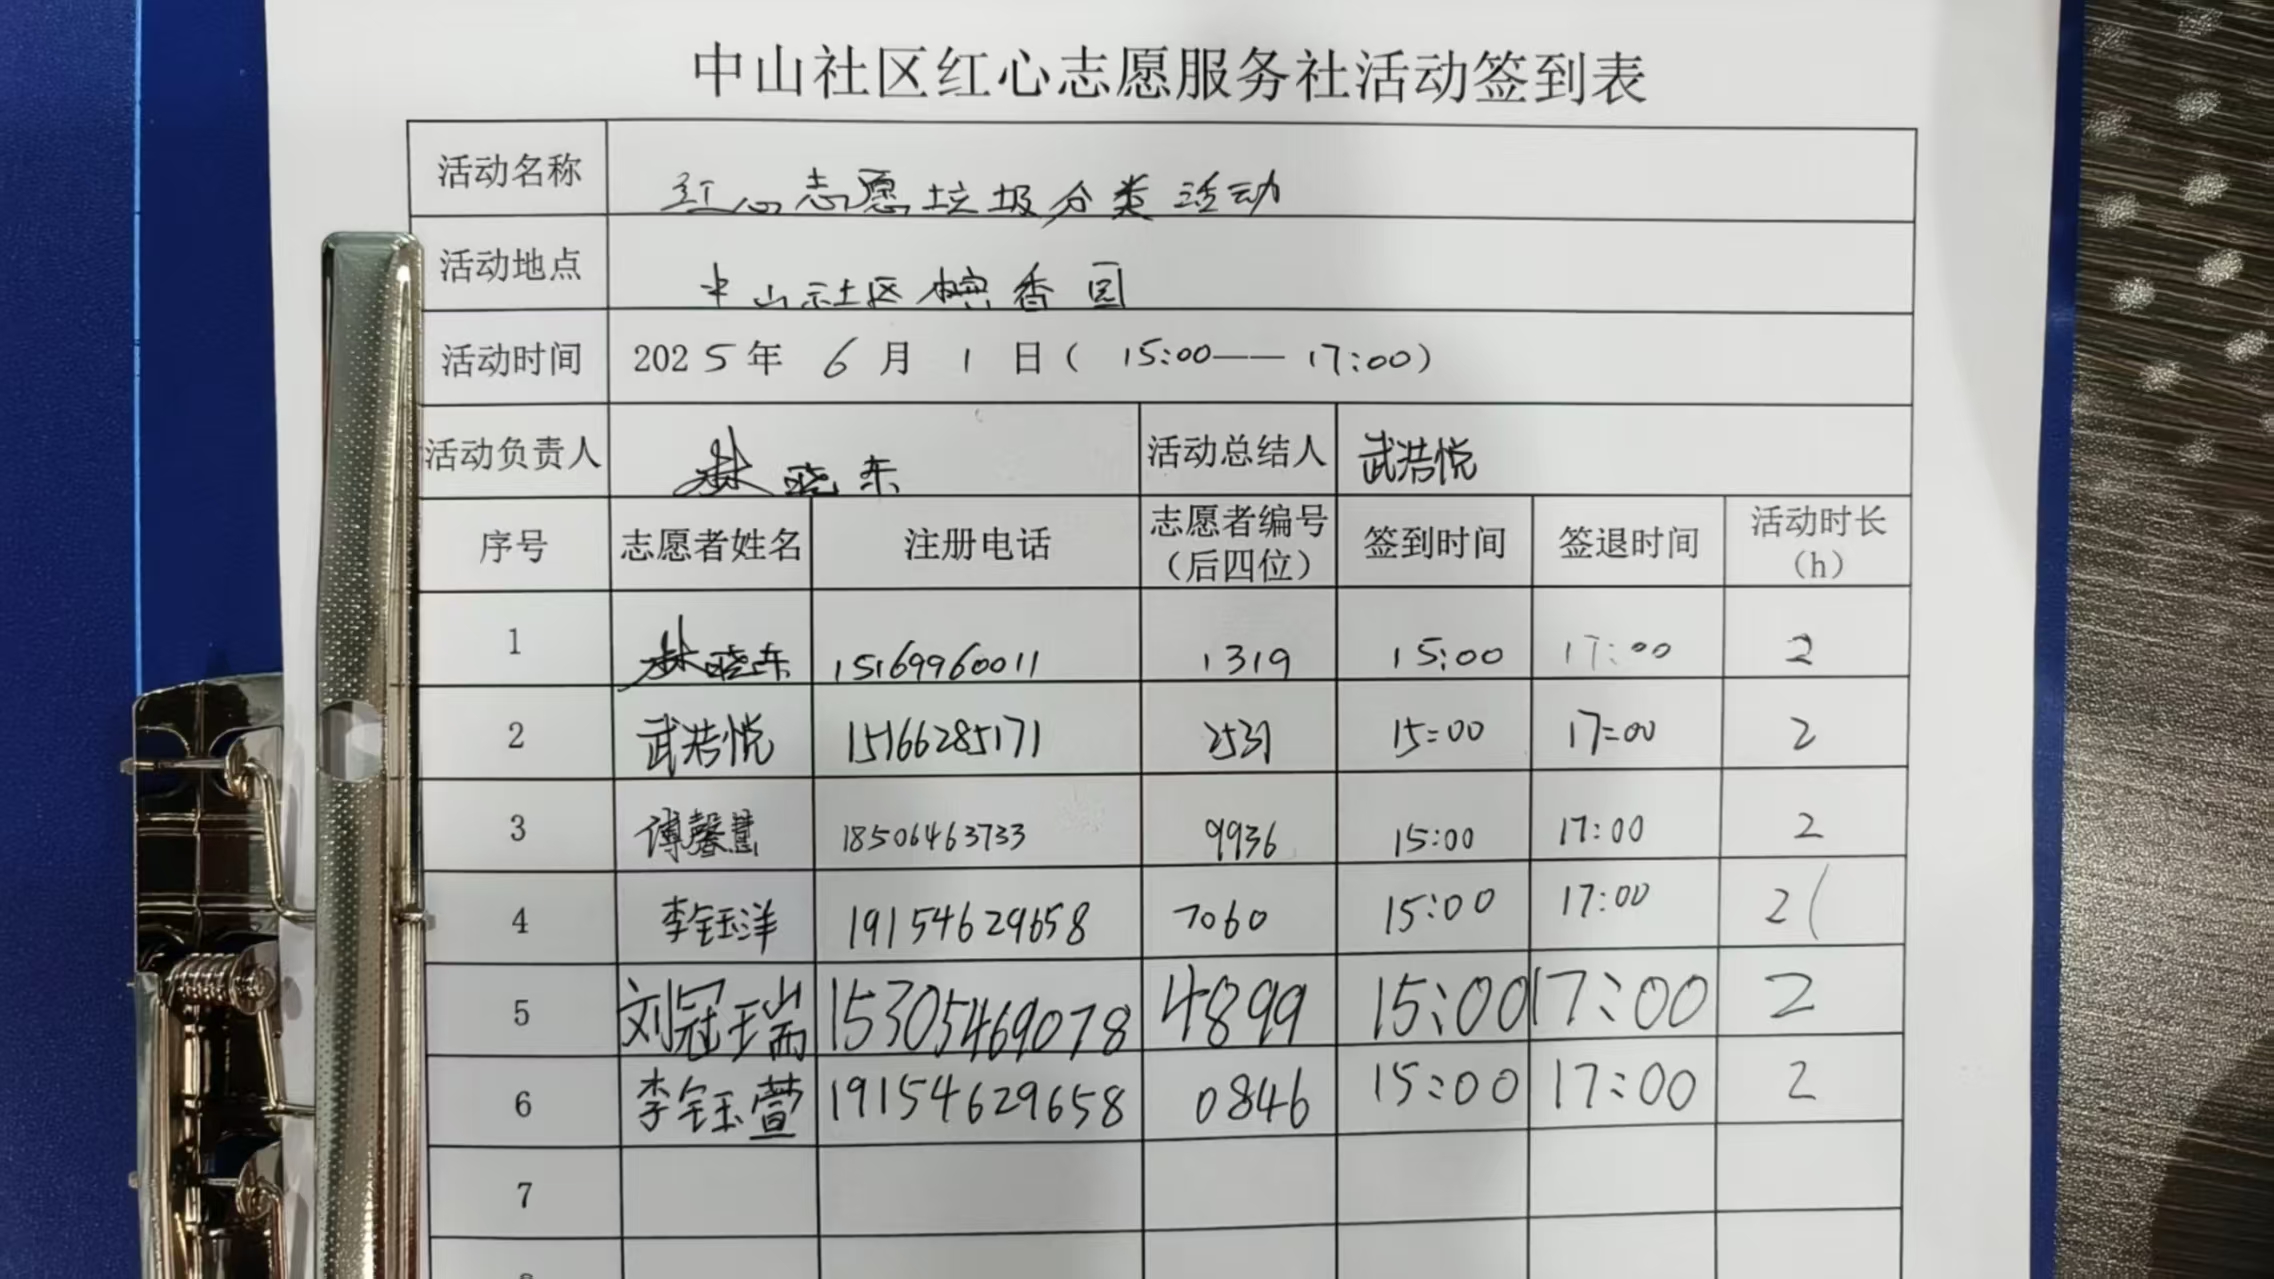 中山社区红心志愿服务社活动签到表
活动名称 红心志愿垃圾分类活动
活动地点 中山社区槟香园
活动时间 2025年 6月 1日( 15:00—— 17:00)
活动负责人 林晓东 活动总结人 武浩悦
序号 志愿者姓名 注册电话 志愿者编号(后四位) 签到时间 签退时间 活动时长(h)
1 林晓东 15169960011 1319 15:00 17:00 2
2 武浩悦 15166285171 15:00 17:00 2
3 傅馨慧 18506463733 9936 15:00 17:00 2
4 李钰洋 19154629658 7060 15:00 17:00 2
5 刘冠瑞 15305469078 4899 15:00 17:00 2
6 李钰萱 19154629658 0846 15:00 17:00 2
7